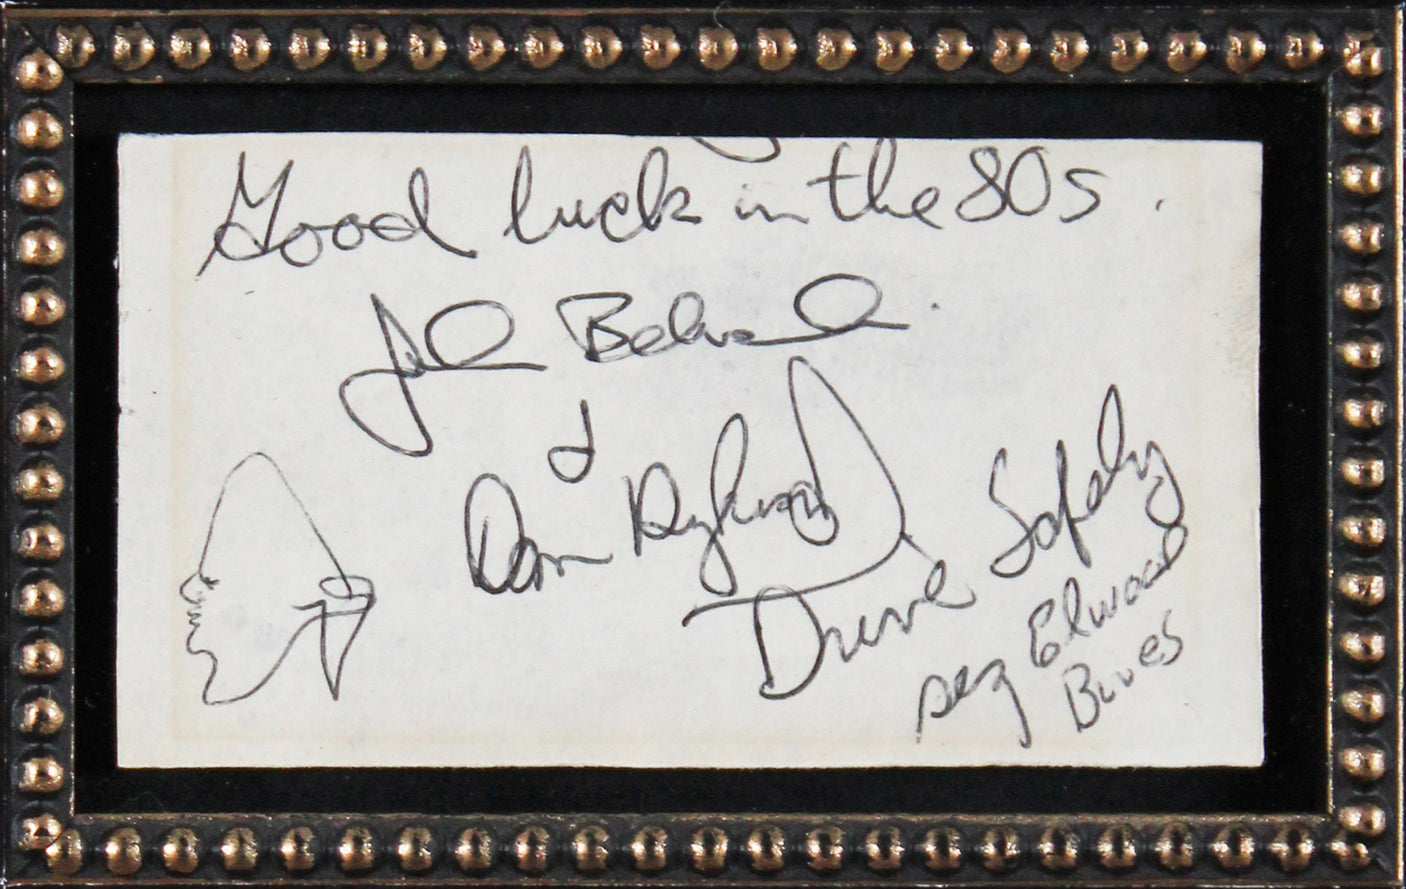 Good luck in the 80s.
John Belushi
&
Dan Aykroyd
Drive Safely
sez Elwood
Blues